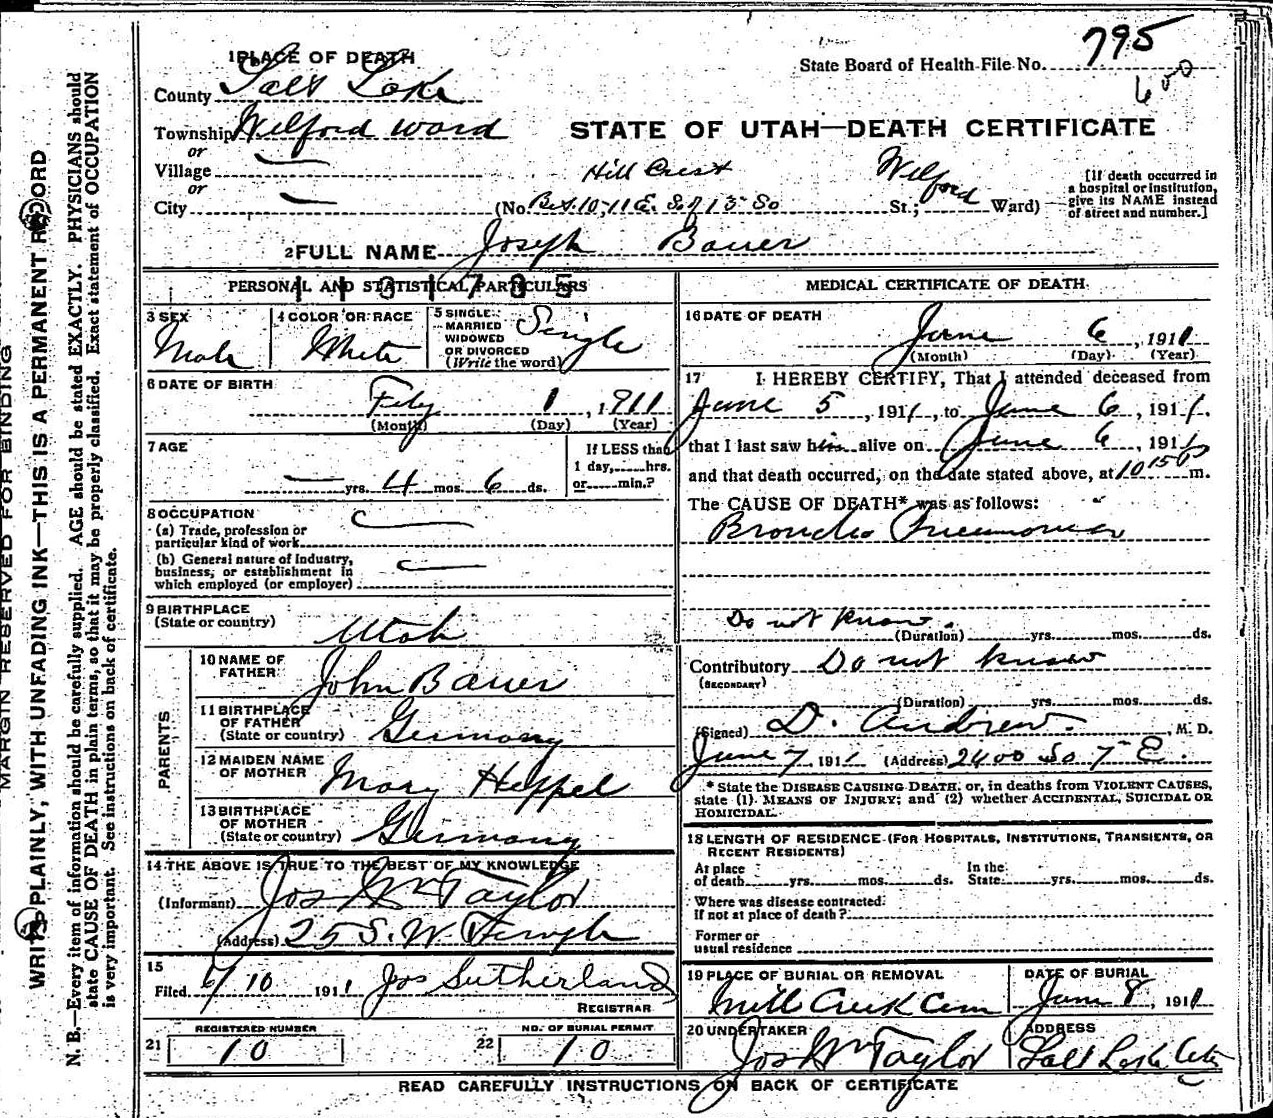 795
600
1 PLACE OF DEATH
State Board of Health File No.
County Salt Lake
Township Wilford Ward
STATE OF UTAH—DEATH CERTIFICATE
or
Village
or
City
Hill Crest
(No. Bet. 10-11 E. So of 13 So St.; Wilford Ward)
[If death occurred in
a hospital or institution,
give its NAME instead
of street and number.]
2 FULL NAME Joseph Bauer
PERSONAL AND STATISTICAL PARTICULARS
3 SEX
Male
4 COLOR OR RACE
White
5 SINGLE
MARRIED
WIDOWED
OR DIVORCED
(Write the word)
Single
6 DATE OF BIRTH
Feby 1, 1911
(Month) (Day) (Year)
7 AGE
yrs. 4 mos. 6 ds.
If LESS than
1 day, hrs.
or min.?
8 OCCUPATION
(a) Trade, profession or
particular kind of work
(b) General nature of industry,
business, or establishment in
which employed (or employer)
9 BIRTHPLACE
(State or country)
Utah
PARENTS
10 NAME OF
FATHER
John Bauer
11 BIRTHPLACE
OF FATHER
(State or country)
Germany
12 MAIDEN NAME
OF MOTHER
Mary Heppel
13 BIRTHPLACE
OF MOTHER
(State or country)
Germany
14 THE ABOVE IS TRUE TO THE BEST OF MY KNOWLEDGE
(Informant) Jos Wm Taylor
(Address) 25 S. W. Temple
15
Filed 6/10 1911 Jos Sutherland
REGISTRAR
REGISTERED NUMBER
21 10
NO. OF BURIAL PERMIT
22 10
MEDICAL CERTIFICATE OF DEATH
16 DATE OF DEATH
June 6, 1911
(Month) (Day) (Year)
17 I HEREBY CERTIFY, That I attended deceased from
June 5, 1911, to June 6, 1911,
that I last saw him alive on June 6, 1911,
and that death occurred, on the date stated above, at 10 150 m.
The CAUSE OF DEATH* was as follows:
Broncho Pneumonia
Do not know.
(Duration) yrs. mos. ds.
Contributory Do not know
(SECONDARY)
(Duration) yrs. mos. ds.
(Signed) D. Andrew, M. D.
June 7, 1911 (Address) 2400 So 7 E.
* State the DISEASE CAUSING DEATH, or, in deaths from VIOLENT CAUSES,
state (1) MEANS OF INJURY; and (2) whether ACCIDENTAL, SUICIDAL OR
HOMICIDAL.
18 LENGTH OF RESIDENCE (FOR HOSPITALS, INSTITUTIONS, TRANSIENTS, OR
RECENT RESIDENTS)
At place
of death yrs. mos. ds.
In the
State yrs. mos. ds.
Where was disease contracted
if not at place of death?
Former or
usual residence
19 PLACE OF BURIAL OR REMOVAL
Mill Creek Cem
DATE OF BURIAL
June 8, 1911
20 UNDERTAKER
Jos Wm Taylor
ADDRESS
Salt Lake City
READ CAREFULLY INSTRUCTIONS ON BACK OF CERTIFICATE
MARGIN RESERVED FOR BINDING
WRITE PLAINLY, WITH UNFADING INK—THIS IS A PERMANENT RECORD
N. B.—Every item of information should be carefully supplied. AGE should be stated EXACTLY. PHYSICIANS should
state CAUSE OF DEATH in plain terms, so that it may be properly classified. Exact statement of OCCUPATION
is very important. See instructions on back of certificate.